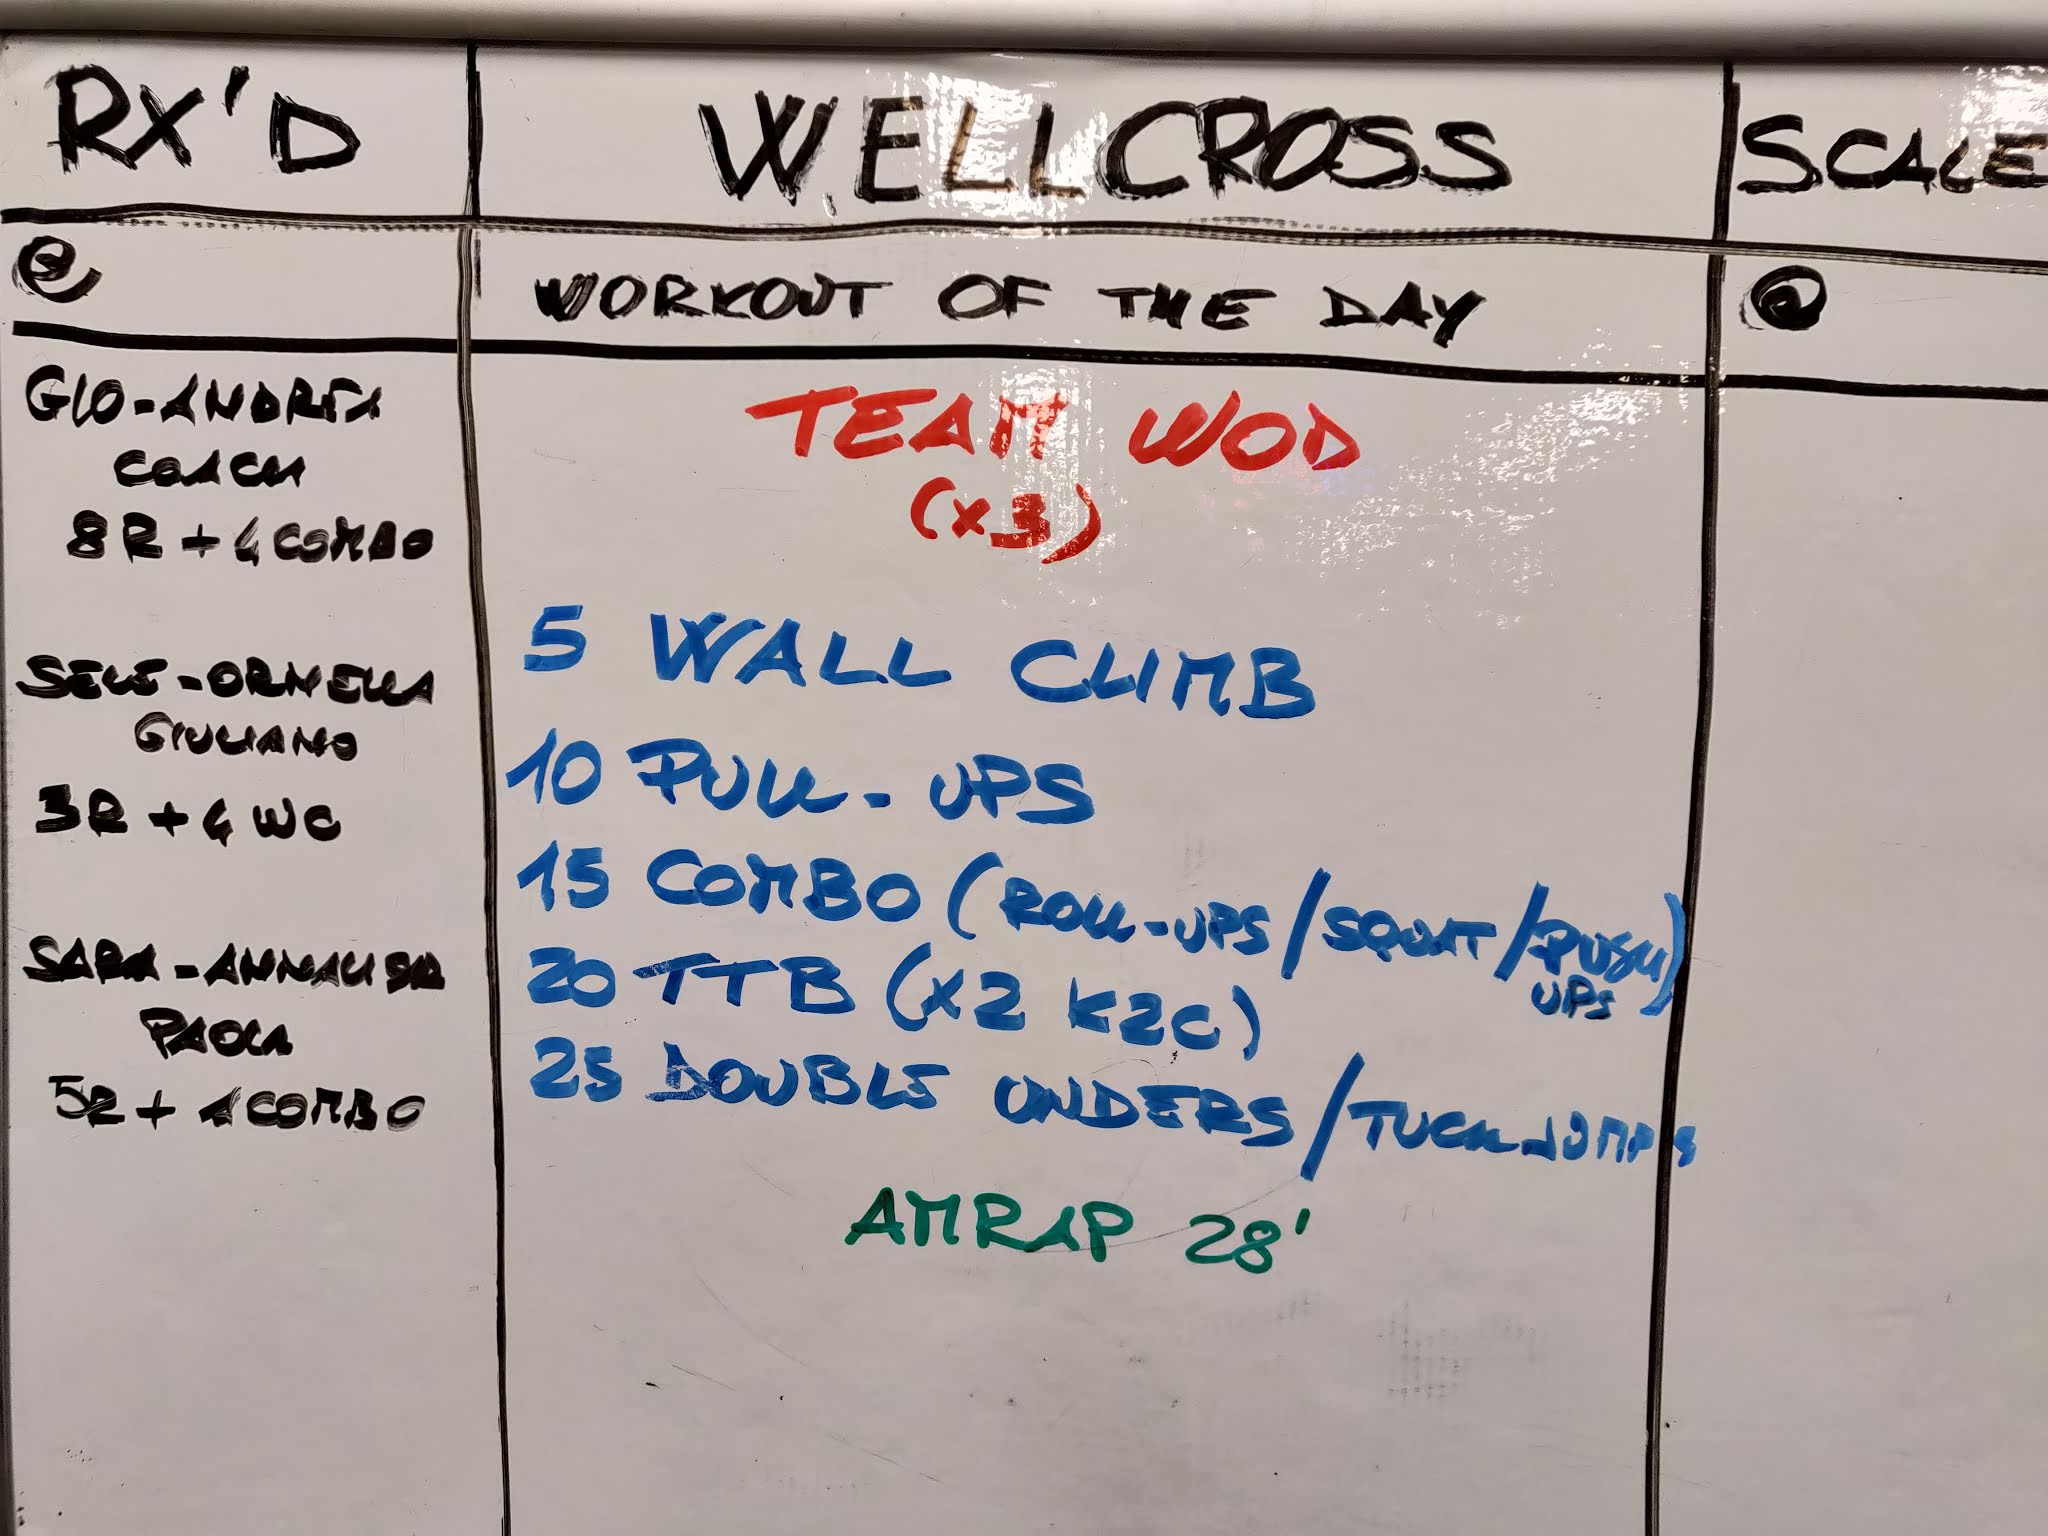 RX'D
WELLCROSS
SCALE
@
WORKOUT OF THE DAY
@
GIO-ANDREA
COACH
8R + 4 COMBO
SELE-ORNELLA
GIULIANO
3R + 4 WC
SARA-ANNALISA
PAOLA
5R + 1 COMBO
TEAM WOD
(x3)
5 WALL CLIMB
10 PULL-UPS
15 COMBO (ROLL-UPS/SQUAT/PUSH
UPS)
20 TTB (x2 K2C)
25 DOUBLE UNDERS/TUCK JUMPS
AMRAP 28'